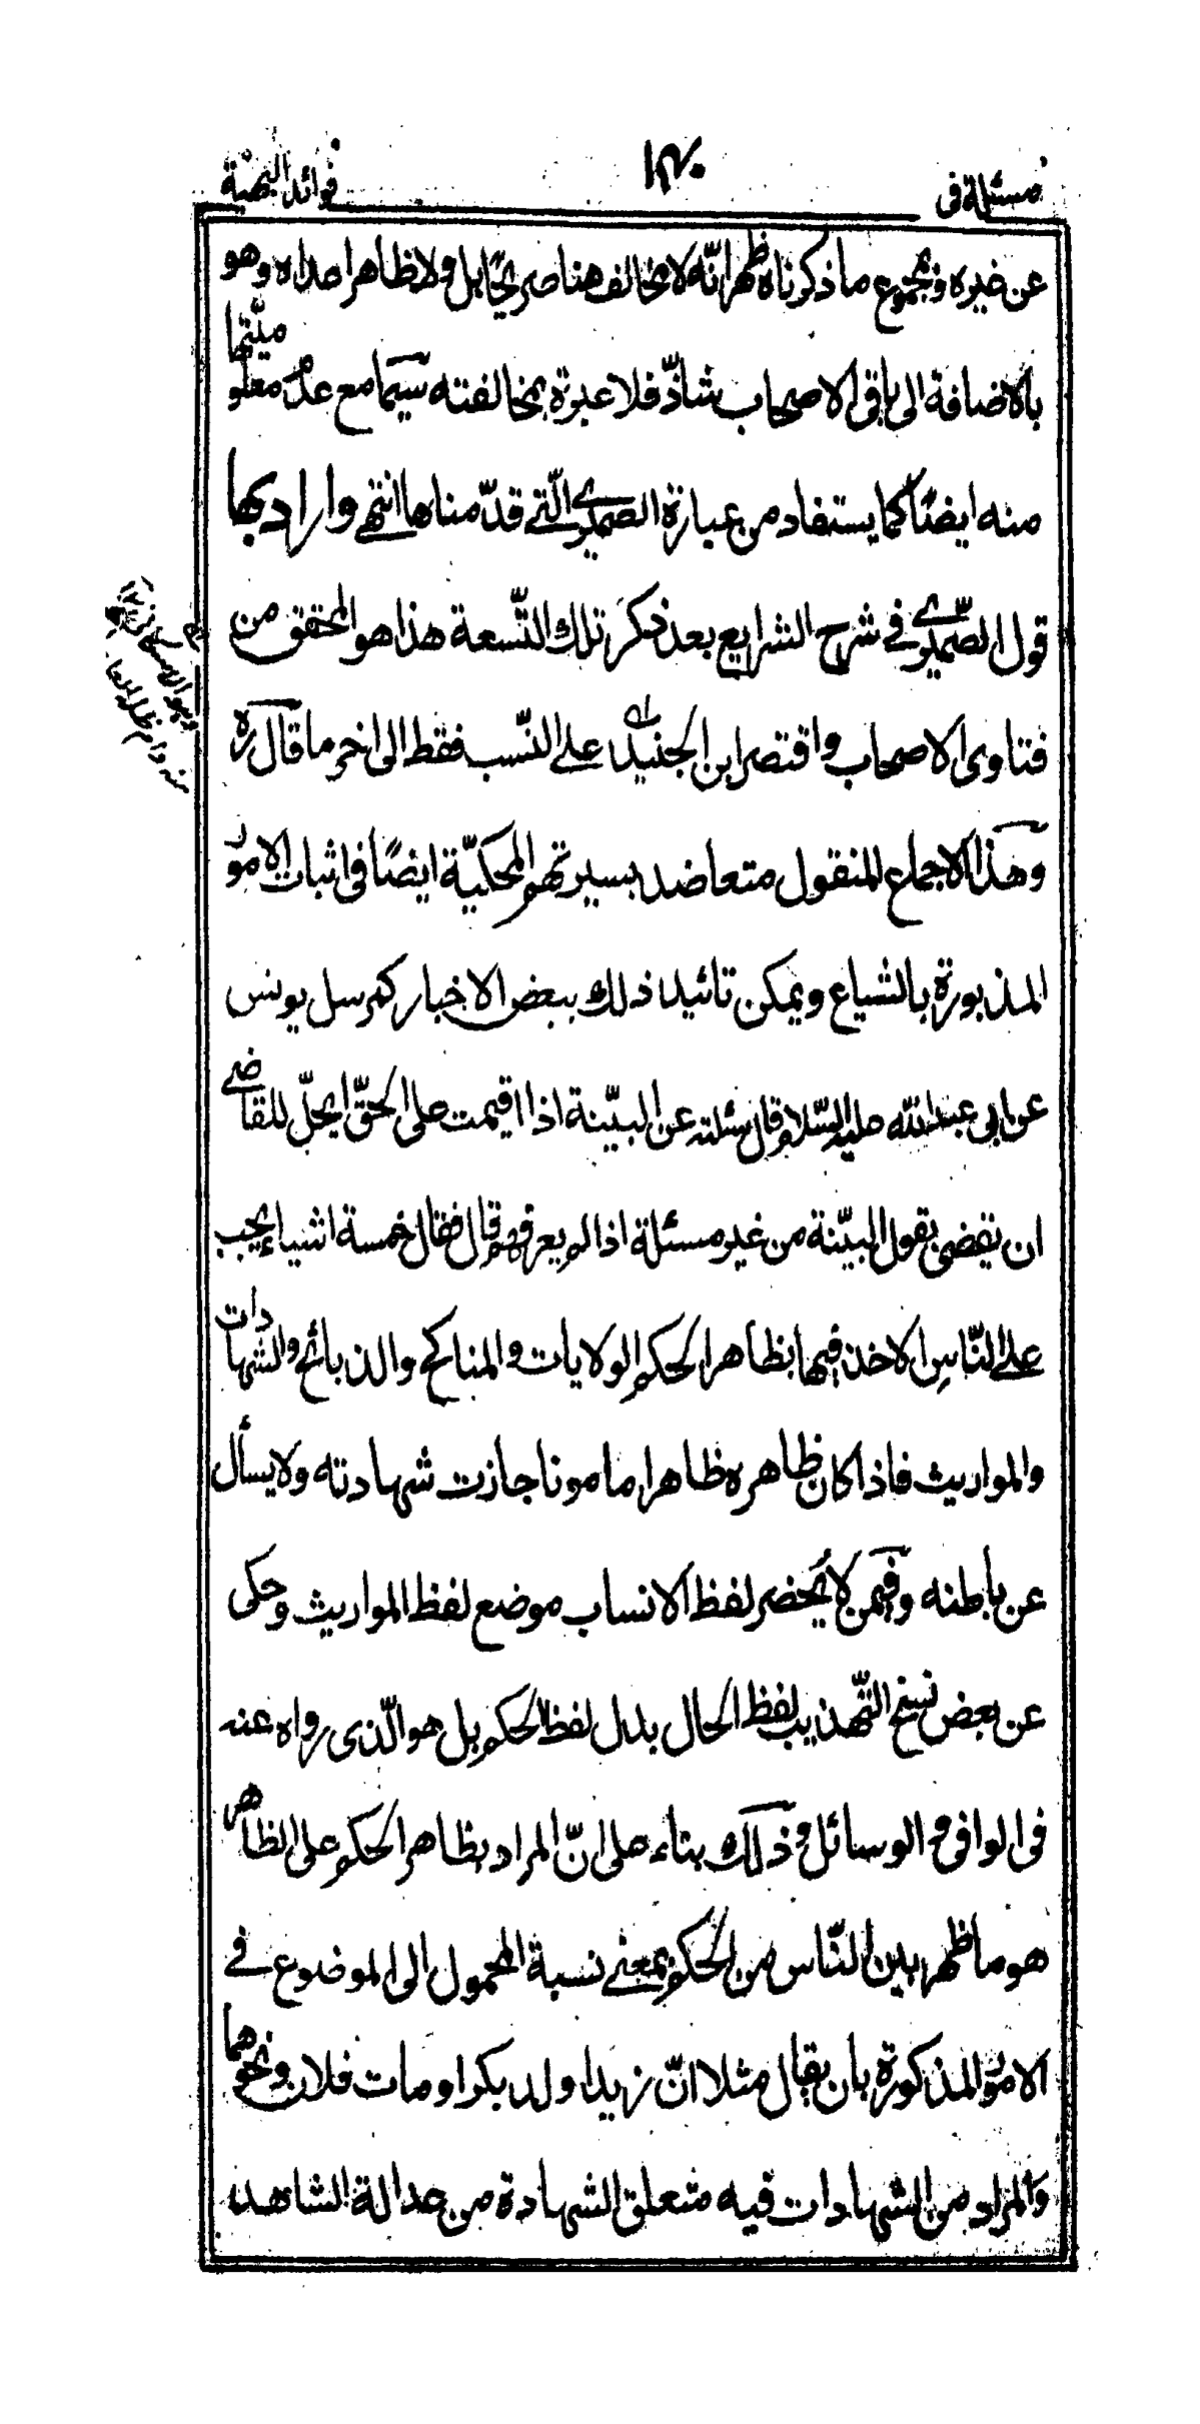 مسئلة فی
١٣٠
فوائد البهیة
عن غیره وبمجموع ما ذکرناه ظهر انّه لا مخالف هنا صریحًا بل ولا ظاهرا عداه وهو
بالاضافة الی باقی الاصحاب شاذّ فلا عبرة بمخالفته سیّما مع عدم معلومیّتها
منه ایضًا کما یستفاد من عبارة الصیمری الّتی قدّمناها انتهی واراد بها
قول الصّیمری فی شرح الشرایع بعد ذکر تلک التّسعة هذا هو المحقق من
فتاوی الاصحاب واقتصر ابن الجنید علی النّسب فقط الی اخر ما قال ره
وهذا الاجماع المنقول متعاضد بسیرتهم المحکیّة ایضًا فی اثبات الامور
المذبورة بالشیاع ویمکن تائید ذلک ببعض الاخبار کمرسل یونس
عن ابی عبد الله علیه السّلام قال سئلته عن البیّنة اذا اقیمت علی الحقّ ایحلّ للقاضی
ان یقضی بقول البیّنة من غیر مسئلة اذا لم یعرفهم قال فقال خمسة اشیاء یجب
علی النّاس الاخذ فیها بظاهر الحکم الولایات والمناکح والذبائح والشهادات
والمواریث فاذا کان ظاهره ظاهرا مامونا جازت شهادته ولا یسأل
عن باطنه وفیمن لا یحضر لفظ الانساب موضع لفظ المواریث وحکی
عن بعض نسخ التّهذیب لفظ الحال بدل لفظ الحکم بل هو الّذی رواه عنه
فی الوافی و الوسائل وذلک بناء علی انّ المراد بظاهر الحکم علی الظاهر
هو ما ظهر بین النّاس من الحکم بمعنی نسبة المحمول الی الموضوع فی
الامور المذکورة بان یقال مثلا انّ زیدا ولد بکرا ومات فلان ونحوهما
والمراد من الشهادات فیه متعلق الشهادة من عدالة الشاهد
منه دام ظله العا